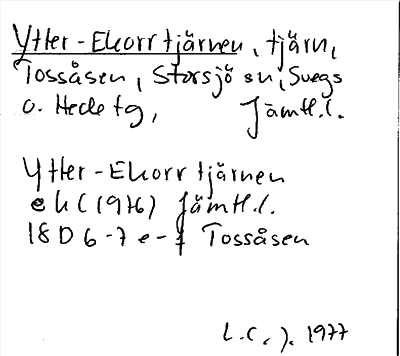 Ytter-Ekorrtjärnen, tjärn,
Tossåsen, Storsjö sn, Svegs
o. Hede tg, Jämtl.l.
Ytter-Ekorrtjärnen
ek (1976) Jämtl.l.
18D 6-7 e-f Tossåsen
L.C.J. 1977